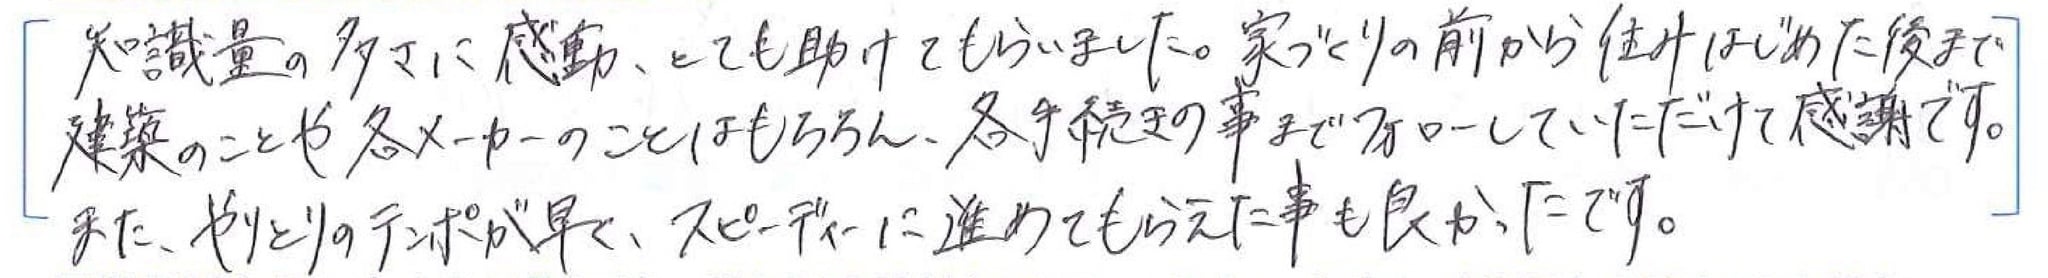 知識量の多さに感動、とても助けてもらいました。家づくりの前から住みはじめた後まで
建築のことや各メーカーのことはもちろん、各手続きの事までフォローしていただけて感謝です。
また、やりとりのテンポが早く、スピーディーに進めてもらえた事も良かったです。